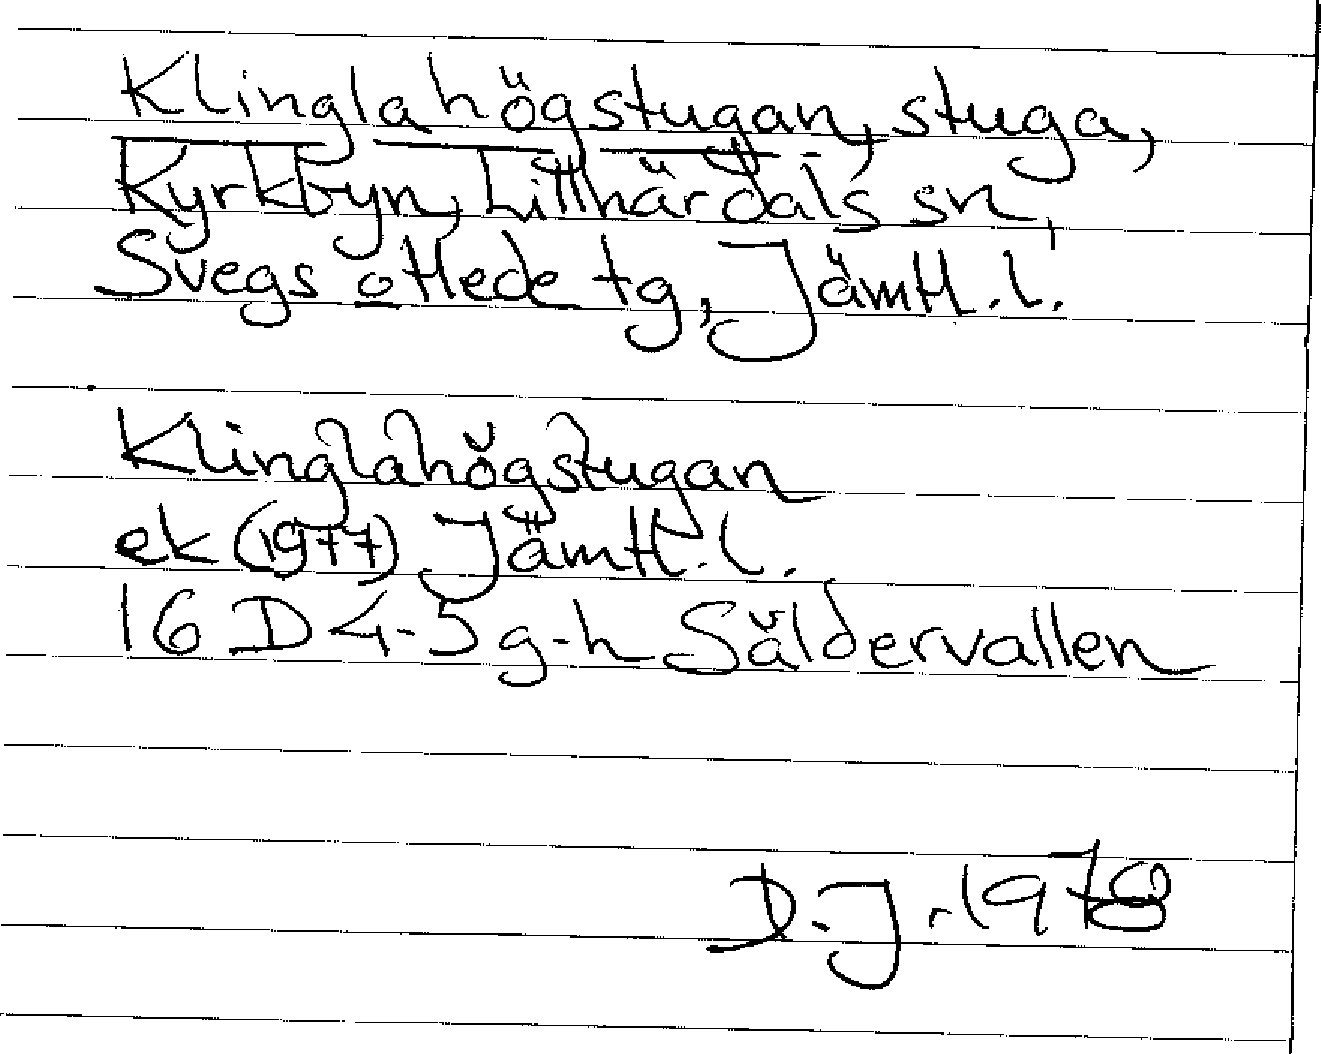 Klinglahögstugan, stuga,
Kyrkbyn, Lillhärdals sn,
Svegs ottede tg, Jämtl.l.
Klinglahögstugan
ek (1977) Jämtl.l.
16 D 4-5 g-h Säldervallen
D.J. 1978